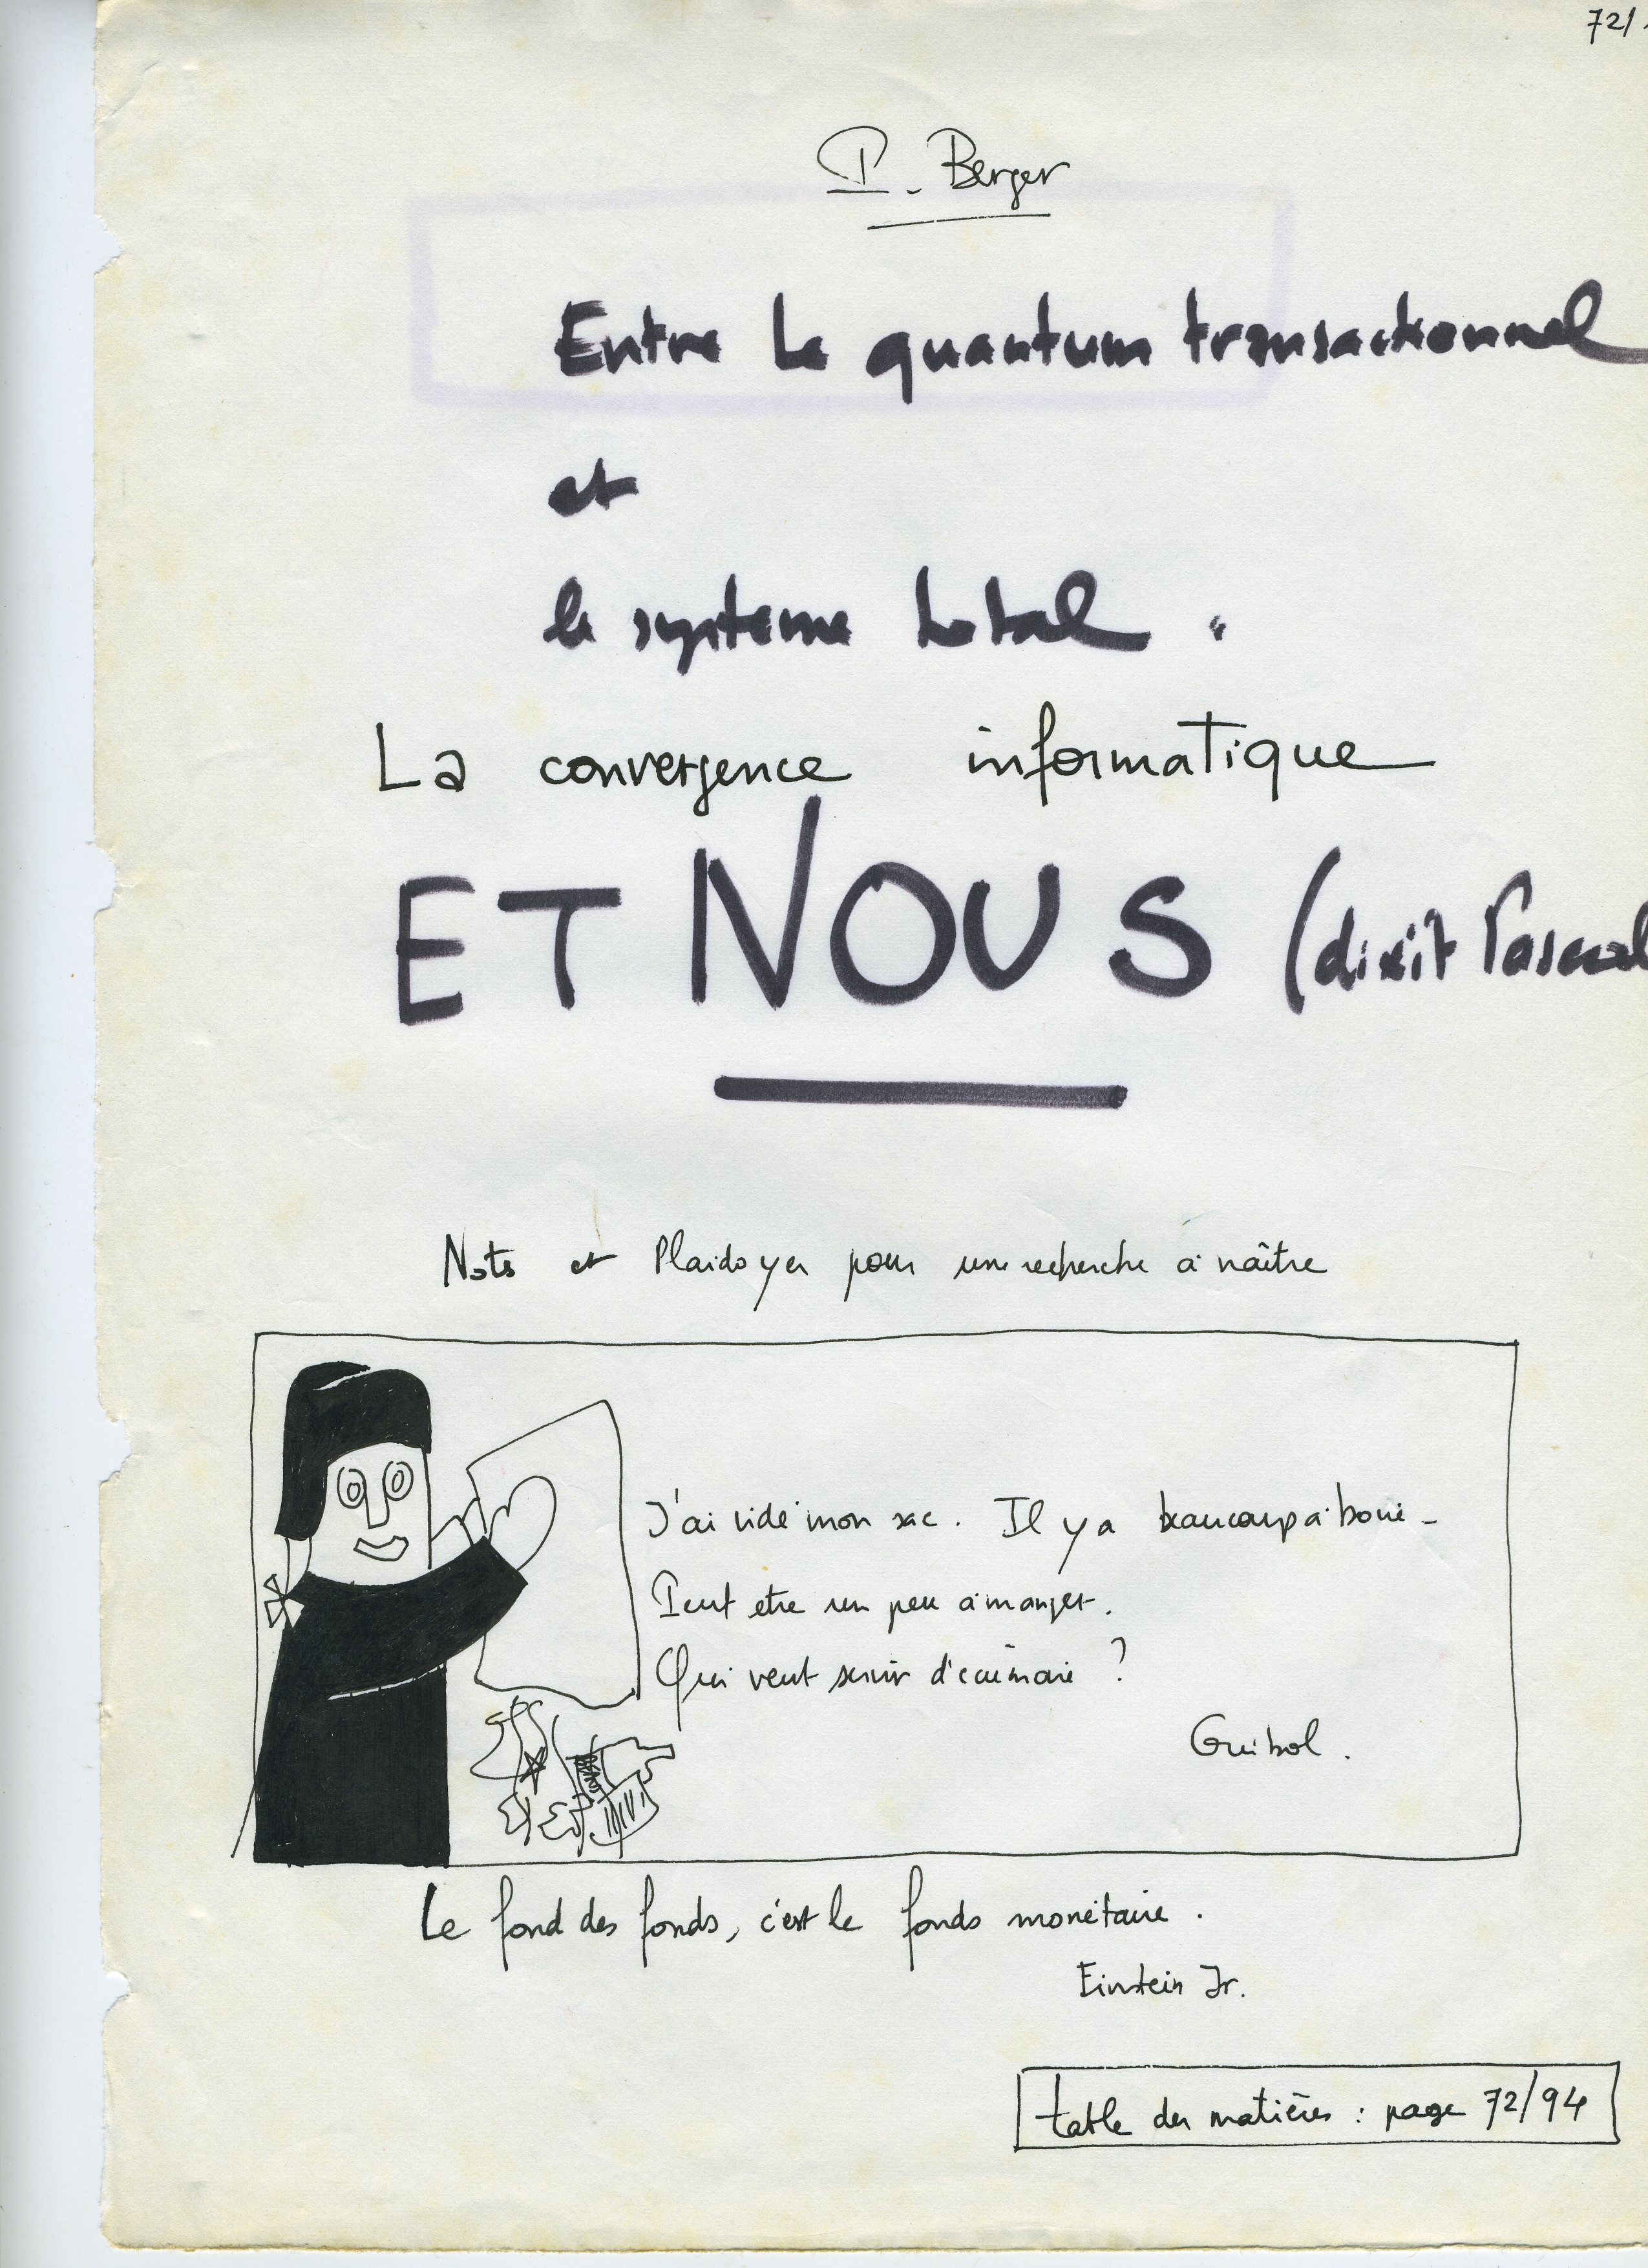 72/
P. Berger
Entre le quantum transactionnel
et
le système total.
La convergence informatique
ET NOUS (dixit Pascal
Notes et Plaidoyer pour une recherche à naître
J'ai vidé mon sac. Il y a beaucoup à boire -
Peut etre un peu à manger.
Qui veut servir d'écumoire ?
Guibol.
Le fond des fonds, c'est le fonds monétaire.
Einstein Jr.
table des matières : page 72/94